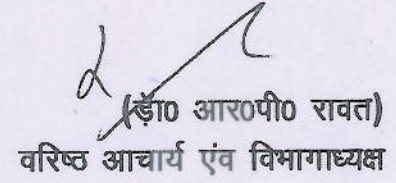 (ड़ॉ0 आर0पी0 रावत)
वरिष्ठ आचार्य एंव विभागाध्यक्ष